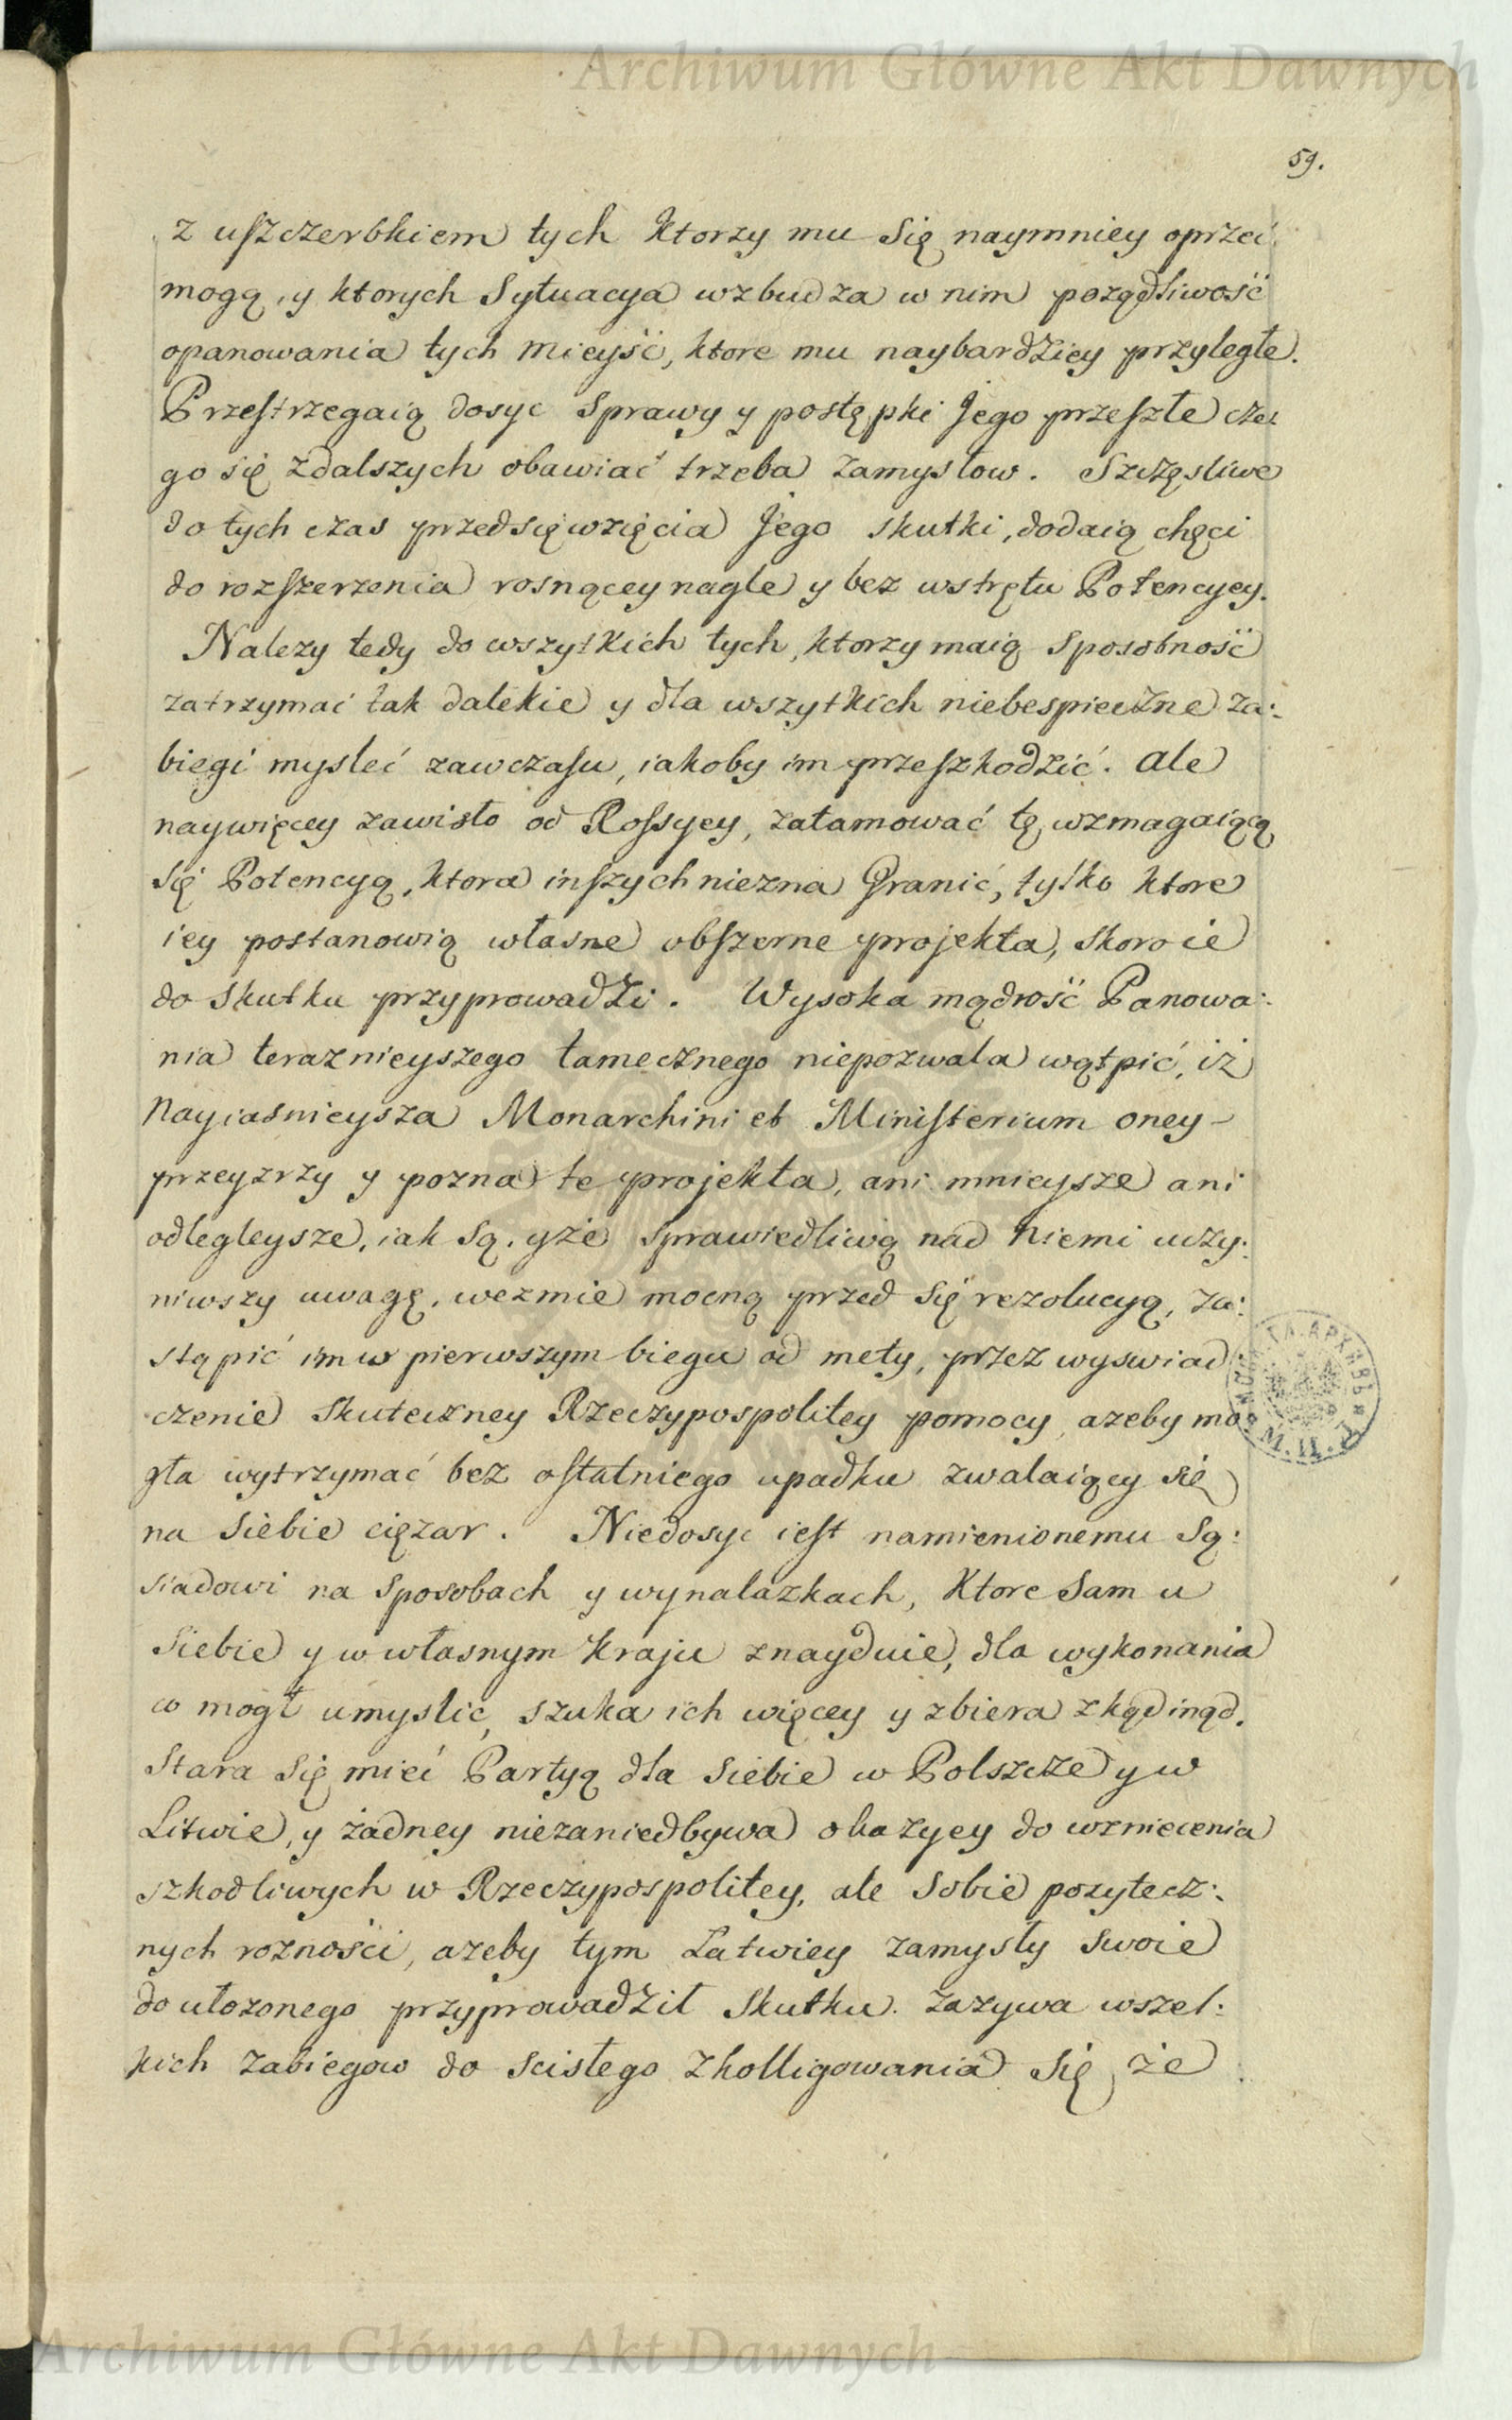 Archiwum Główne Akt Dawnych
59.
z uſzczerbkiem tych ktorzy mu Się naymniey oprzeć
mogą, y ktorych Sytuacya wzbudza w nim pożądliwość
opanowania tych mieyść, ktore mu naybardziey przyległe.
Przeſtrzegaią dosyc Sprawy y postępki Jego przeſzłe cze:
go się zdalszych obawiać trzeba zamysłow. Szczęsliwe
do tych czas przedsięwzięcia Jego skutki, dodaią chęci
do rozſzerzenia rosnącey nagle y bez wstrętu Potencyey.
Nalezy tedy do wszytkich tych, ktorzy maią Sposobność
zatrzymać tak dalekie y dla wszytkich niebespieczne za:
biegi mysleć zawczaſu, iakoby im przeſzkodzić. ale
naywięcey zawisło od Roſsyey, zatamować tę wzmagaiącą
się Potencyą, ktora inſzych niezna Granić, tylko ktore
iey postanowią własne obſzerne projekta, skoro ie
do skutku przyprowadzi. Wysoka mądrość Panowa:
nia teraznieyszego tamecznego niepozwala wątpić, iż
Nayiaśnieysza Monarchini et Miniſterium oney
przeyzrzy y pozna te projekta, ani mnieysze ani
odlegleysze, iak są, yże sprawiedliwą nad niemi uczy:
niwszy uwagę, wezmie mocną przed się rezolucyą, za:
stąpić im w pierwszym biegu od mety, przez wyswiad:
czenie Skuteczney Rzeczypospolitey pomocy, azeby mo
gła wytrzymać bez oſtatniego upadku zwalaiący się
na Siebie ciężar. Niedosyc ieſt namienionemu Są:
siadowi na Sposobach y wynalazkach, ktore Sam u
Siebie y w własnym kraju znayduie, dla wykonania
co mogł umyslic, szuka ich więcey y zbiera zkądinąd.
Stara się mieć Partyą dla Siebie w Polszcze y w
Litwie, y żadney niezaniedbywa okazyey do wzniecenia
szkodliwych w Rzeczypospolitey, ale Sobie pozytecz:
nych rozności, azeby tym Łatwiey zamysły swoie
do ułozonego przyprowadził Skutku. Zazywa wszel:
kich zabiegow do scisłego zkolligowania się że
Archiwum Główne Akt Dawnych